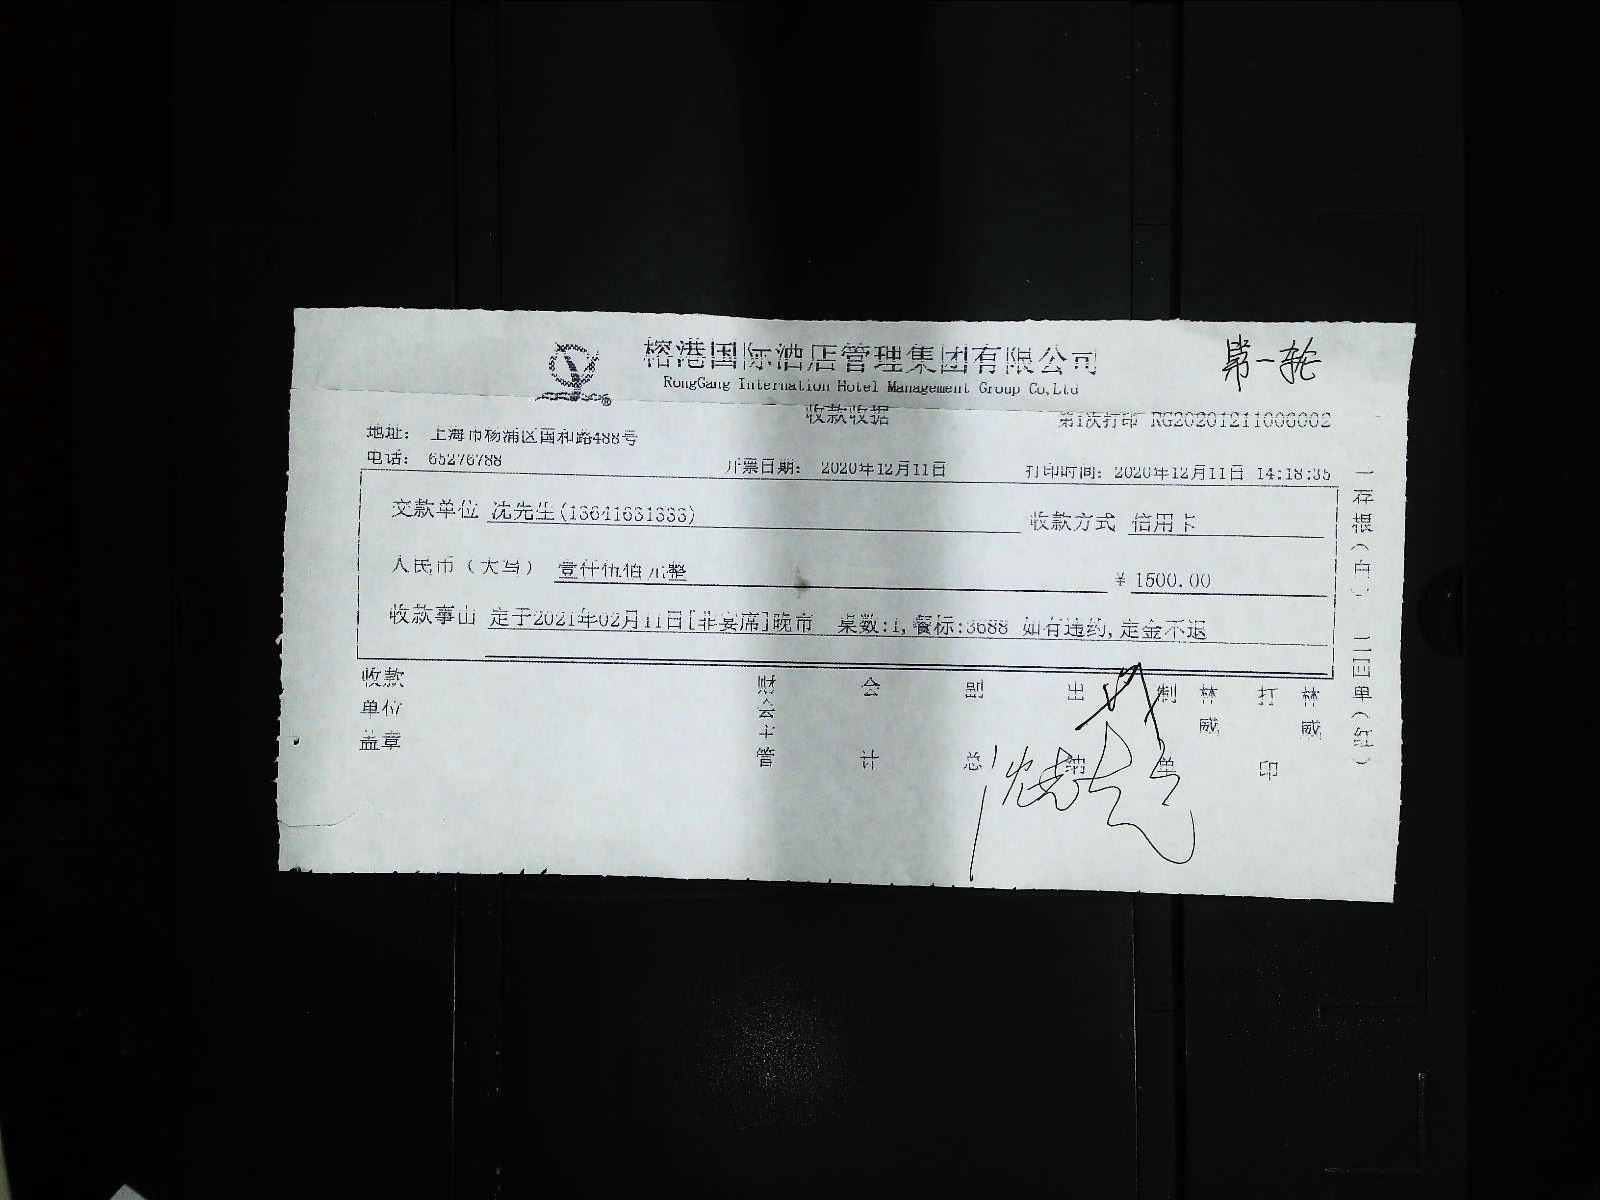 榕港国际酒店管理集团有限公司
第一轮
RongGang Internation Hotel Management Group Co,Ltd
收款收据
第1次打印 RG20201211006002
地址： 上海市杨浦区国和路488号
电话： 65276788
开票日期： 2020年12月11日
打印时间： 2020年12月11日 14:18:35
交款单位 沈先生(13641631333)
收款方式 信用卡
人民币（大写） 壹仟伍佰元整
¥ 1500.00
收款事由 定于2021年02月11日[非宴席]晚市 桌数:1,餐标:3688 如有违约,定金不退
收款单位盖章
财会主管
会计
副总
出纳
制单
林威
打印
林威
一存根（白） 二回单（红）